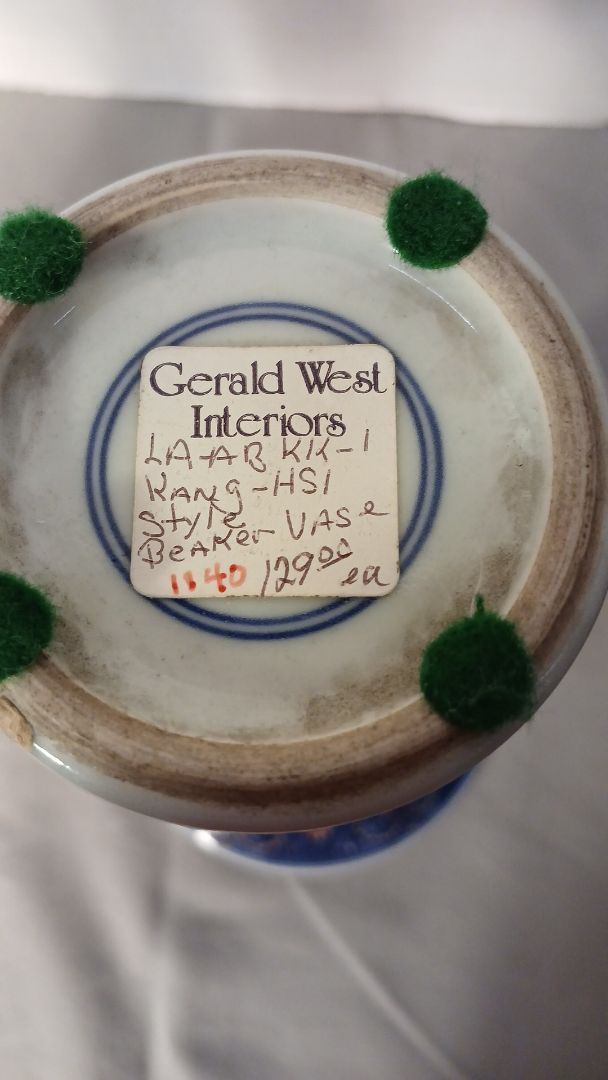 Gerald West
Interiors
LA-AB KK-1
KANg-HSI
Style
BEAKer VASe
1140 129.00 ea